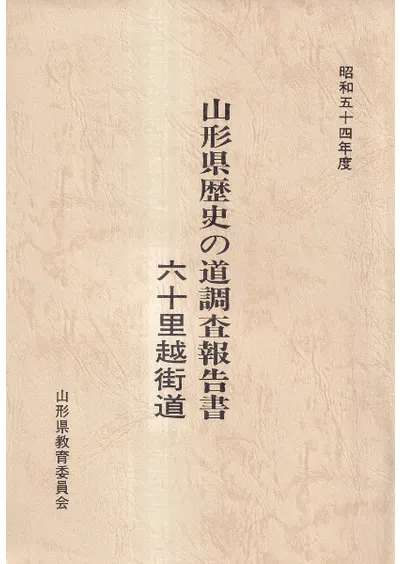 昭和五十四年度
山形県歴史の道調査報告書
六十里越街道
山形県教育委員会